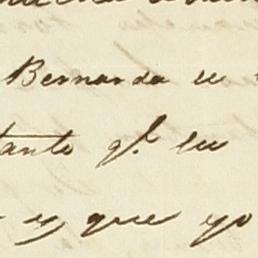 Bernarda su
tanto q.e su
y que yo